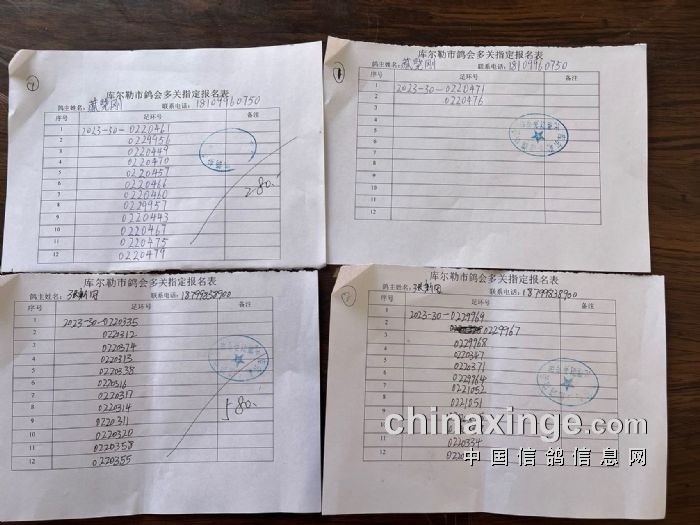 库尔勒市鸽会多关指定报名表
鸽主姓名: 联系电话: 18109960750
序号 足环号 备注
1 2023-30-0220461
2 0229956
3 0220449
4 0220470
5 0220457
6 0220466
7 0220460
8 0229957
9 0220443
10 0220467
11 0220475
12 0220479
280.
库尔勒市鸽会多关指定报名表
鸽主姓名: 联系电话: 18109960750
序号 足环号 备注
1 2023-30-0220471
2 0220476
3
4
5
6
7
8
9
10
11
12
库尔勒市鸽会多关指定报名表
鸽主姓名: 张新国 联系电话: 18799838900
序号 足环号 备注
1 2023-30-0220335
2 0220312
3 0220374
4 0220313
5 0220338
6 0220316
7 0220317
8 0220314
9 0220311
10 0220320
11 0220358
12 0220355
580.
库尔勒市鸽会多关指定报名表
鸽主姓名: 张新国 联系电话: 18799838900
序号 足环号 备注
1 2023-30-0229969
2 0229967
3 0229968
4 0220347
5 0220371
6 0229964
7 0221052
8 0221051
9
10
11 0220334
12
chinaxinge.com
中国信鸽信息网